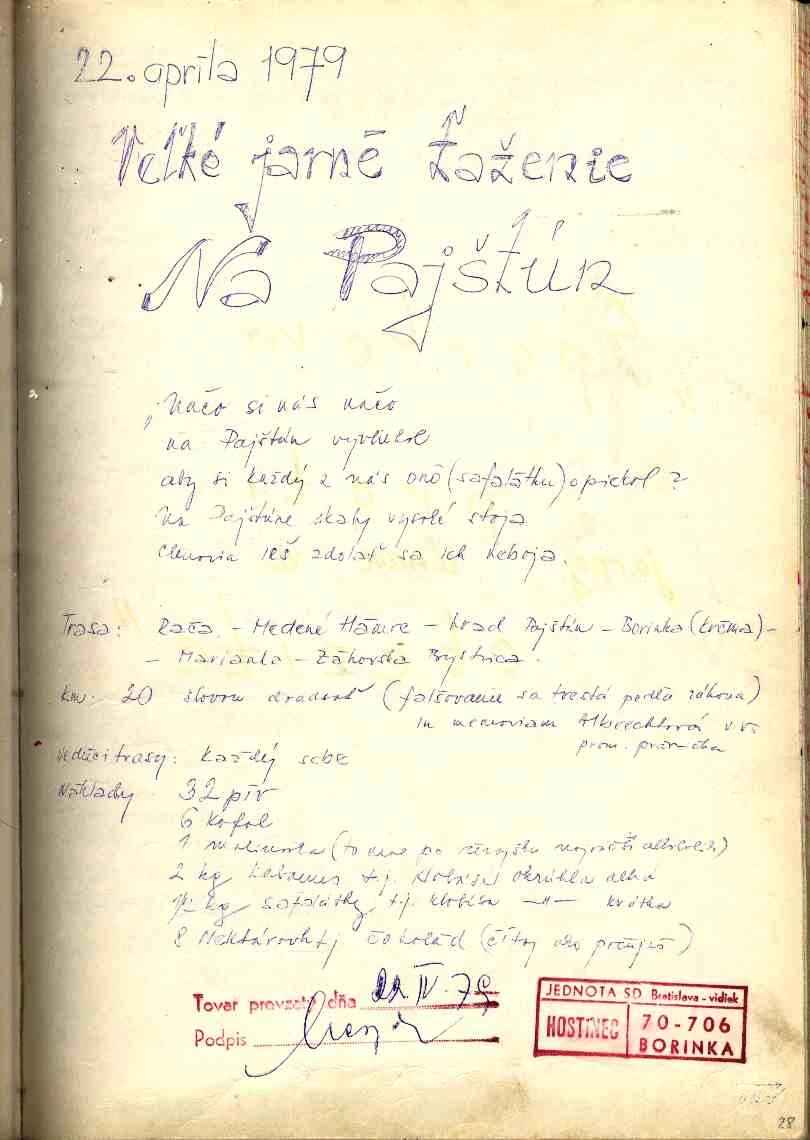 22. apríla 1979
Veľké jarné ťaženie
Na Pajštún
Načo si nás načo
na Pajštún vyvliekol
aby si každý z nás onô (safalátku) opiekol?
Na Pajštúne skaly vysoké stoja
členovia zdolať sa ich neboja.
Trasa: Rača - Medené Hámre - hrad Pajštún - Borinka (krčma) -
- Marianka - Záhorská Bystrica.
km: 20 slovom dvadsať (falšovanie sa trestá podľa zákona)
In memoriam Albrechtová
prom. právnička
Vedúci trasy: Každý sebe
Náklady: 32 pív
6 kofol
1 malinovka
2 kg t.j. klobása okrúhla dlhá
kg safalátky, t.j. klobása -"- krátka
8 t.j. čokolád (čítaj ako)
Tovar prevzatý dňa 22. IV. 79
Podpis
JEDNOTA SD Bratislava - vidiek
HOSTINEC 70-706
BORINKA
28